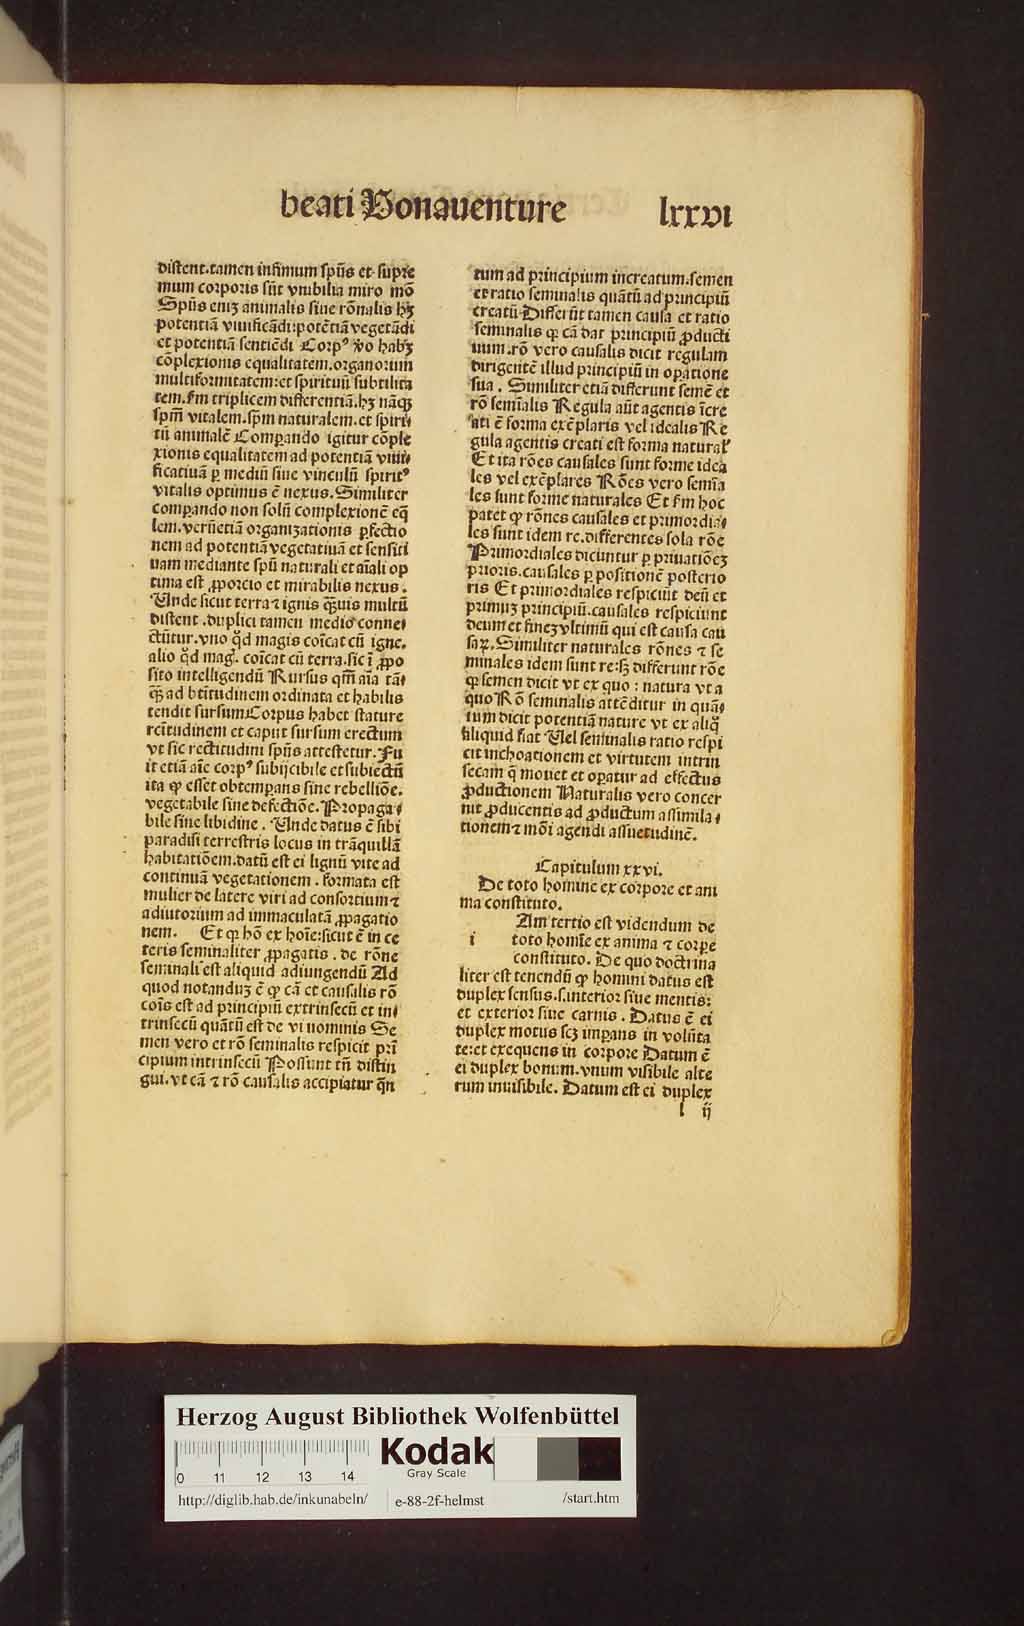 beati Bonauenture lxxvi
distent.tamen infimum spūs et supre
mum corporis sūt vnibilia miro mō
Spūs eniꝫ animalis siue rōnalis hꝫ
potentiā viuificādi:potētiā vegetādi
et potentiā sentiēdi Corpꝰ ꝟo habꝫ
cōplexionis equalitatem.organorum
multiformitatem:et spirituū subtilita
tem.fm triplicem differentiā.hꝫ nāqꝫ
spm̄ vitalem.spm̄ naturalem.et spiri⸗
tū animalē Comparando igitur cōple
xionis equalitatem ad potentiā viui⸗
ficatiuā ꝑ mediū siue vinculū spiritꝰ
vitalis optimus ē nexus. Similiter
comparando non solū complexionē eq̄
lem.verūetiā organizationis ꝑfectio
nem ad potentiā vegetatiuā et sensiti
uam mediante spū naturali et aīali op
tima est ꝓporcio et mirabilis nexus.
Unde sicut terra ⁊ ignis qꝫuis multū
distent .duplici tamen medio conne⸗
ctūtur.vno qd̄ magis coīcat cū igne.
alio qd̄ mag̉. coīcat cū terra.sic ī ꝓpo
sito intelligendū Rursus qm̄ aīa tā⸗
qꝫ ad btītudinem ordinata et habilis
tendit sursum Corpus habet stature
rcītudinem et caput sursum erectum
vt sic rectitudini spūs attestetur. Fu
it etiā aīe corpꝰ subijcibile et subiectū
ita ꝙ esset obtemꝑans sine rebelliōe.
vegetabile sine defectiōe. Propaga⸗
bile sine libidine. Unde datus ē sibi
paradisi terrestris locus in trāquillā
habitatiōem.datū est ei lignū vite ad
continuā vegetationem. formata est
mulier de latere viri ad consortium ⁊
adiutorium ad immaculatā ꝓpagatio
nem. Et ꝙ hō ex hoīe:sicut ē in ce
teris seminaliter ꝓpagatis . de rōne
seminali est aliquid adiungendū Ad
quod notanduꝫ ē ꝙ cā et causalis rō
coīs est ad principiū extrinsecū et in⸗
trinsecū quātū est de vi nominis Se
men vero et rō seminalis respicit prī
cipium intrinsecū Possunt tn̄ distin
gui.vt cā ⁊ rō causalis accipiatur qn̄
tum ad principium increatum.semen
et ratio seminalis quātū ad principiū
creatū Differūt tamen causa et ratio
seminalis qꝛ cā dat principiū ꝓducti
uum.rō vero causalis dicit regulam
dirigentē illud principiū in oꝑatione
sua . Similiter etiā differunt semē et
rō semīalis Regula aūt agentis īcre
ati ē forma exēplaris vel idealis Re
gula agentis creati est forma natural̕
Et ita rōes causales sunt forme idea
les vel exēplares Rōes vero semīa
les sunt forme naturales Et fm hoc
patet ꝙ rōnes causales et primordia⸗
les sunt idem re.differentes sola rōe
Primordiales dicuntur ꝑ priuatiōeꝫ
prioris.causales ꝑ positionē posterio
ris Et primordiales respiciūt deū et
primuꝫ principiū.causales respiciunt
deum et fineꝫ vltimū qui est causa cau
saꝝ. Similiter naturales rōnes ⁊ se
minales idem sunt re:sꝫ differunt rōe
ꝙ semen dicit vt ex quo : natura vt a
quo Rō seminalis attēditur in quā⸗
tum dicit potentiā nature vt ex aliq̊
aliquid fiat Uel seminalis ratio respi
cit inchoationem et virtutem intrin
secam q̄ mouet et oꝑatur ad effectus
ꝓductionem Naturalis vero concer
nit ꝓducentis ad ꝓductum assimila⸗
tionem ⁊ mōi agendi assuetudinē.
Capitulum xxvi.
De toto homine ex corpore et ani
ma constituto.
i Am tertio est videndum de
toto homīe ex anima ⁊ corpe
constituto. De quo doctrina
liter est tenendū ꝙ homini datus est
duplex sensus.s.interior siue mentis:
et exterior siue carnis . Datus ē ei
duplex motus scꝫ imꝑans in volūta
te:et exequens in corpore Datum ē
ei duplex bonum.vnum visibile alte
rum inuisibile. Datum est ei duplex
l ij
Herzog August Bibliothek Wolfenbüttel
0 11 12 13 14
Kodak
Gray Scale
http://diglib.hab.de/inkunabeln/ e-88-2f-helmst /start.htm